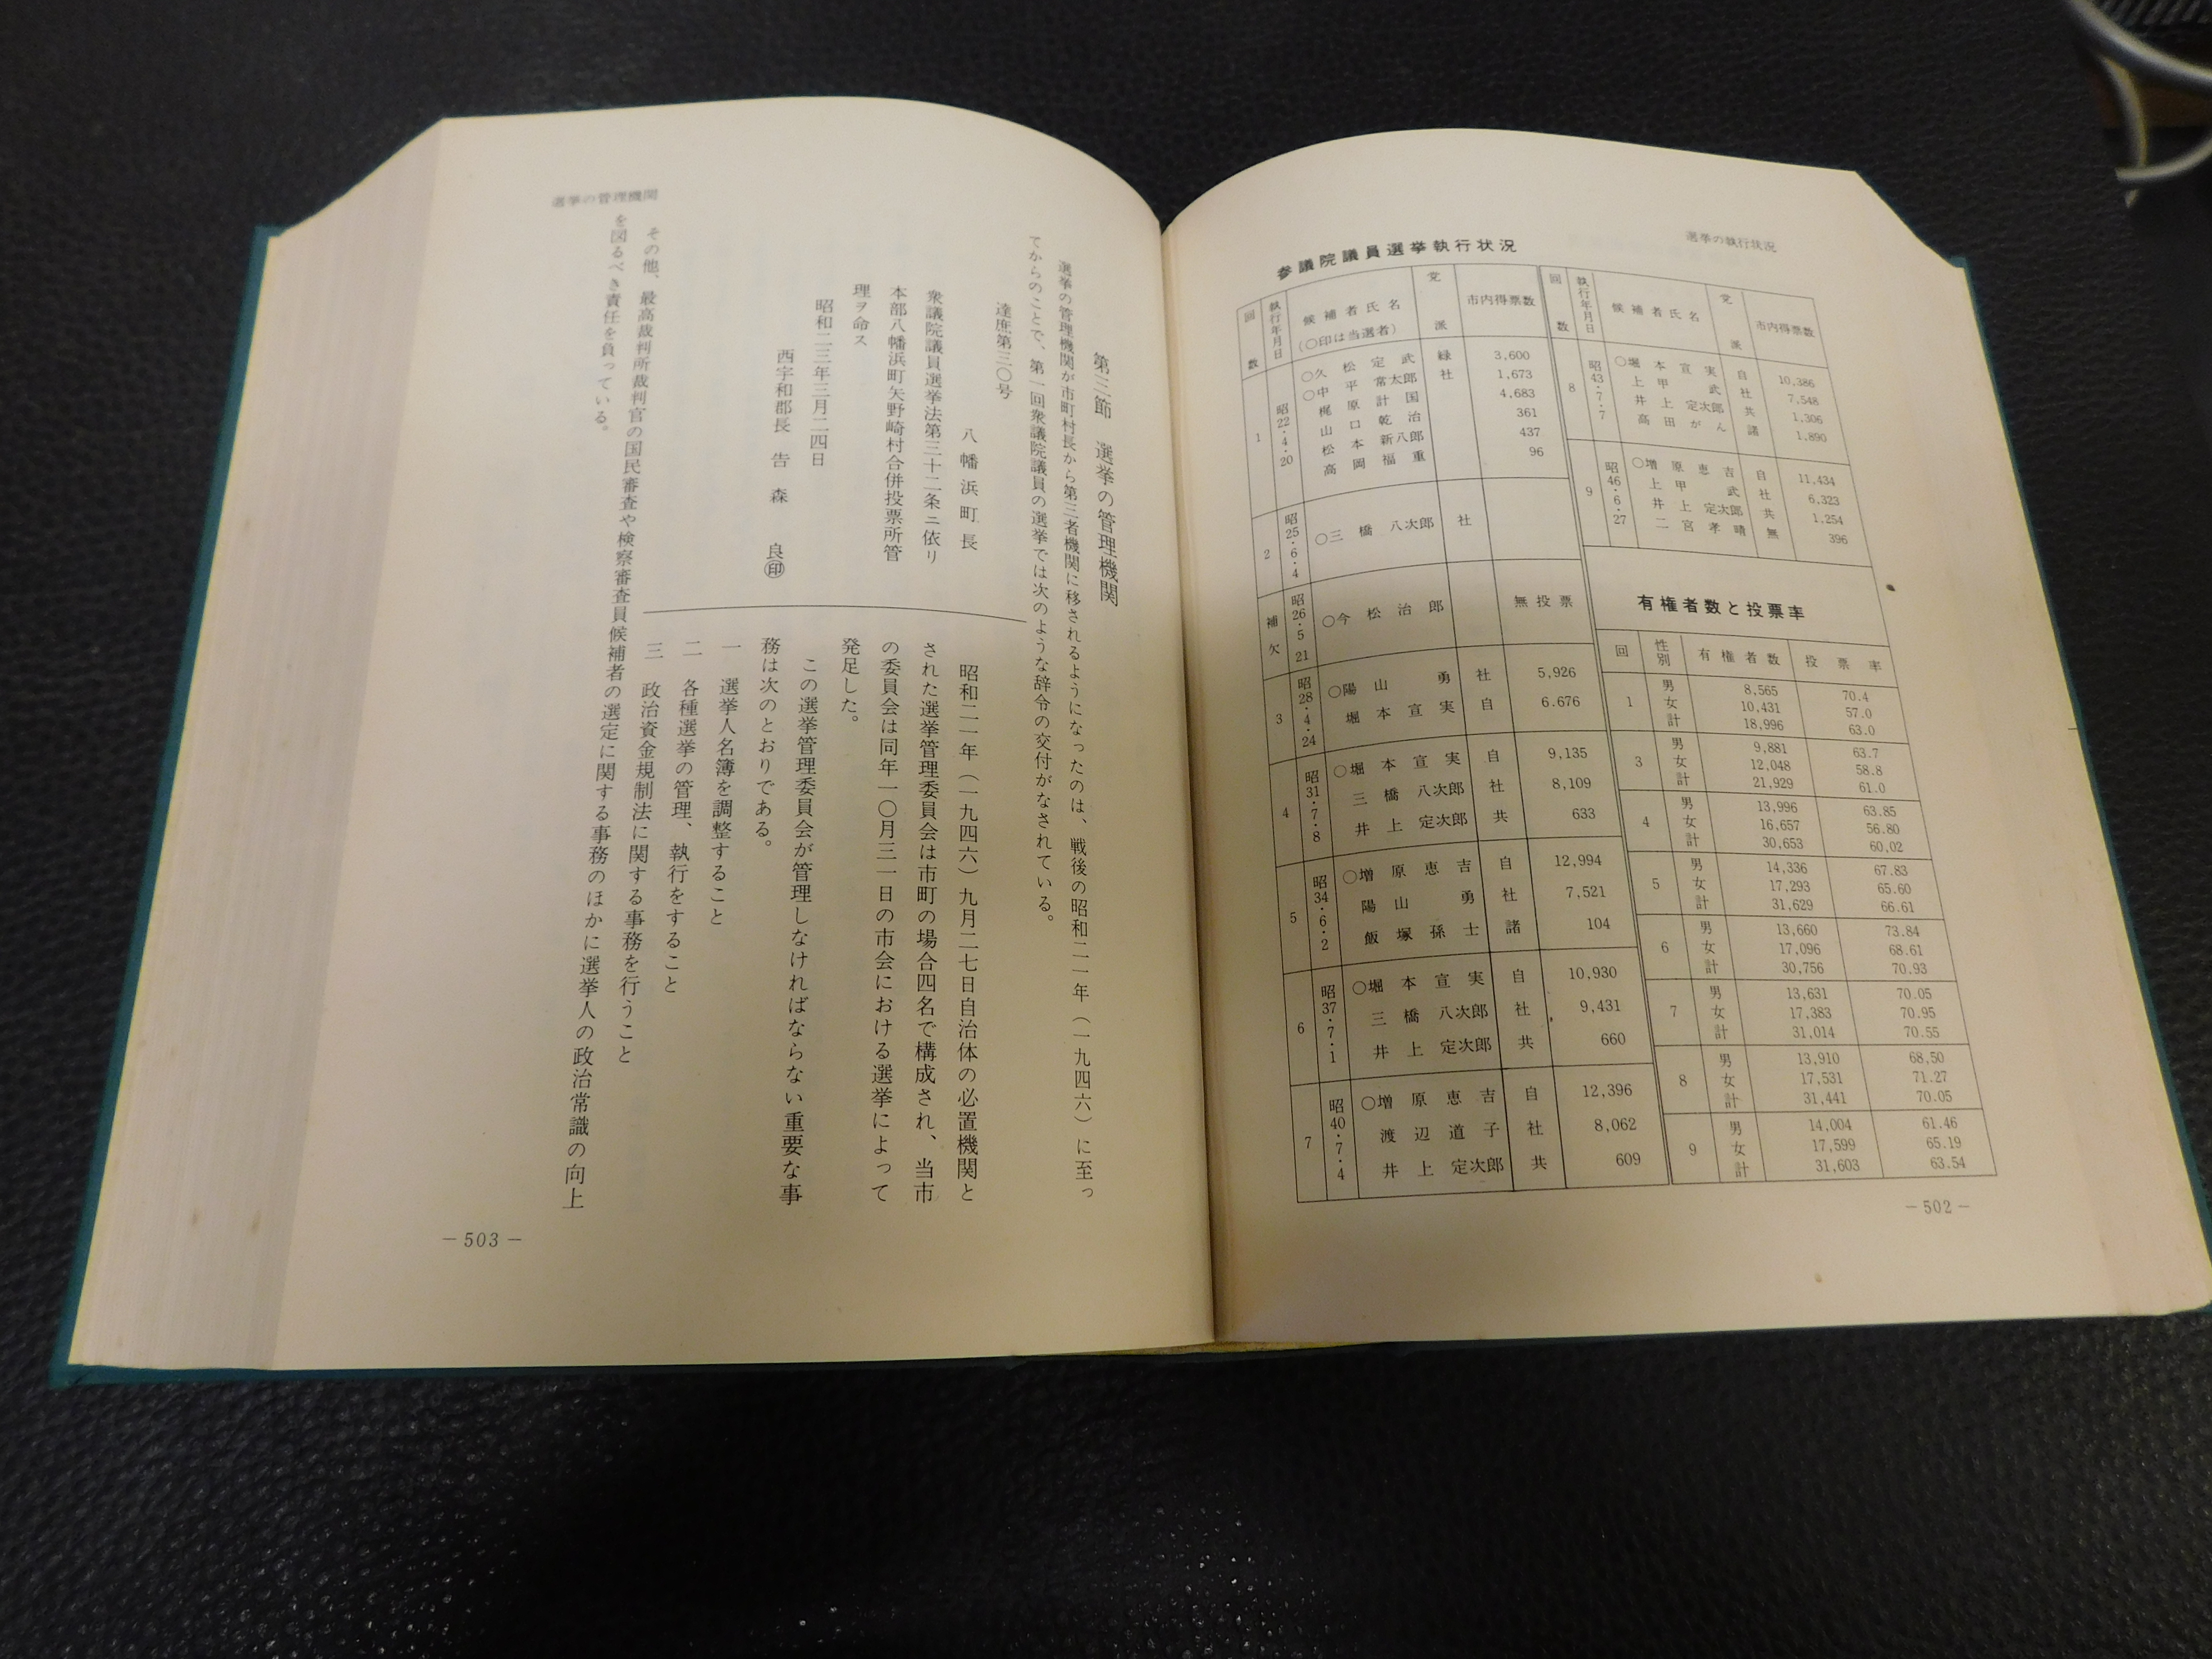 選挙の執行状況
参議院議員選挙執行状況
回数 執行年月日 候補者氏名(○印は当選者) 党派 市内得票数
1 昭22・4・20 ○久松定武 緑 3,600
○中平常太郎 社 1,673
○梶原計国 4,683
山口乾治 361
松本新八郎 437
高岡福重 96
2 昭25・6・4 ○三橋八次郎 社
補欠 昭26・5・21 ○今松治郎 無投票
3 昭28・4・24 ○陽山勇 社 5,926
堀本宣実 自 6.676
4 昭31・7・8 ○堀本宣実 自 9,135
三橋八次郎 社 8,109
井上定次郎 共 633
5 昭34・6・2 ○増原恵吉 自 12,994
陽山勇 社 7,521
飯塚孫士 諸 104
6 昭37・7・1 ○堀本宣実 自 10,930
三橋八次郎 社 9,431
井上定次郎 共 660
7 昭40・7・4 ○増原恵吉 自 12,396
渡辺道子 社 8,062
井上定次郎 共 609
回数 執行年月日 候補者氏名 党派 市内得票数
8 昭43・7・7 ○堀本宣実 自 10,386
上甲武 社 7,548
井上定次郎 共 1,306
高田がん 諸 1,890
9 昭46・6・27 ○増原恵吉 自 11,434
上甲武 社 6,323
井上定次郎 共 1,254
二宮孝晴 無 396
有権者数と投票率
回 性別 有権者数 投票率
1 男 8,565 70.4
女 10,431 57.0
計 18,996 63.0
3 男 9,881 63.7
女 12,048 58.8
計 21,929 61.0
4 男 13,996 63.85
女 16,657 56.80
計 30,653 60,02
5 男 14,336 67.83
女 17,293 65.60
計 31,629 66.61
6 男 13,660 73.84
女 17,096 68.61
計 30,756 70.93
7 男 13,631 70.05
女 17,383 70.95
計 31,014 70.55
8 男 13,910 68,50
女 17,531 71.27
計 31,441 70.05
9 男 14,004 61.46
女 17,599 65.19
計 31,603 63.54
－502－
選挙の管理機関
第三節 選挙の管理機関
選挙の管理機関が市町村長から第三者機関に移されるようになったのは、戦後の昭和二一年(一九四六)に至っ
てからのことで、第一回衆議院議員の選挙では次のような辞令の交付がなされている。
達庶第三〇号
八幡浜町長
衆議院議員選挙法第三十二条ニ依リ
本部八幡浜町矢野崎村合併投票所管
理ヲ命ス
昭和二三年三月二四日
西宇和郡長 告森 良㊞
昭和二一年(一九四六)九月二七日自治体の必置機関と
された選挙管理委員会は市町の場合四名で構成され、当市
の委員会は同年一〇月三一日の市会における選挙によって
発足した。
この選挙管理委員会が管理しなければならない重要な事
務は次のとおりである。
一 選挙人名簿を調整すること
二 各種選挙の管理、執行をすること
三 政治資金規制法に関する事務を行うこと
その他、最高裁判所裁判官の国民審査や検察審査員候補者の選定に関する事務のほかに選挙人の政治常識の向上
を図るべき責任を負っている。
－503－